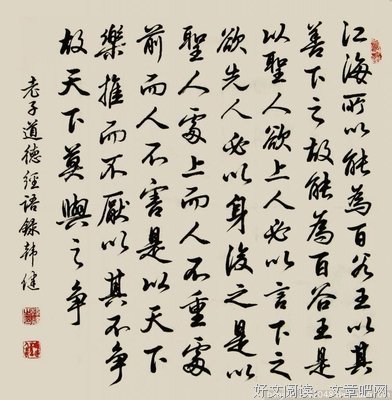 江海所以能為百谷王以其
善下之故能為百谷王是
以聖人欲上人必以言下之
欲先人必以身後之是以
聖人處上而人不重處
前而人不害是以天下
樂推而不厭以其不争
故天下莫與之争
老子道德經語錄韩健
好文阅读 文章吧网